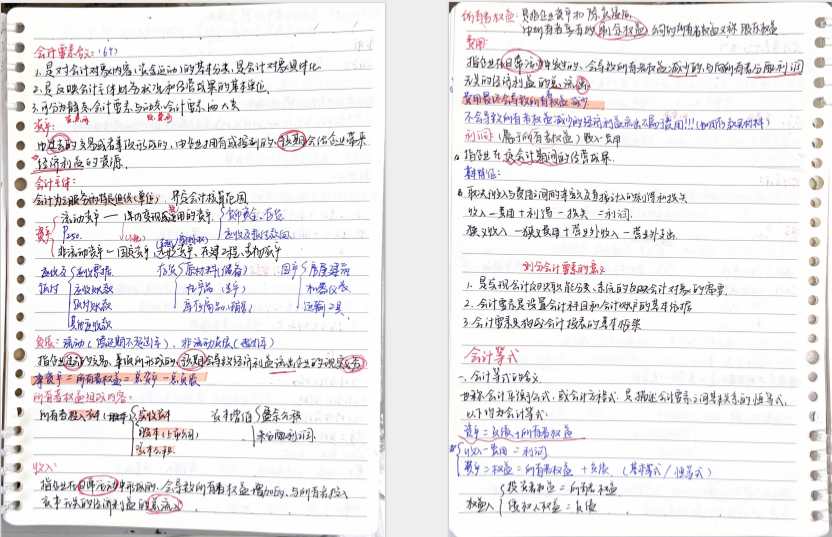 会计要素含义:(6个)
1.是对会计对象内容(资金运动)的基本分类,是会计对象具体化
2.是反映会计主体财务状况和经营成果的基本单位.
3.可分为静态会计要素与动态会计要素两大类
资产:
由过去的交易或者事项形成的,由企业拥有或控制的,预期会给企业带来
经济利益的资源.
会计主体:
会计为之服务的特定组织(单位),界定会计核算范围
流动资产
资产
P250.
应收及预付款项
非流动资产—固定资产
应收及预付
应收票据
应收账款
预付账款
其他应收款
存货
原材料(储备)
在产品(生产)
库存商品(销售)
固产
房屋建筑
机器仪表
运输工具
负债:流动
非流动负债
指企业过去的交易、事项所形成的,预期会导致经济利益流出企业的现实义务
净资产=所有者权益=总资产-总负债
所有者权益组成内容:
所有者投入资本
实收资本
股本(上市公司)
资本公积
盈余公积
未分配利润.
收入:
指企业在日常活动中形成的,会导致所有者权益增加的,与所有者投入
资本无关的经济利益的总流入
所有者权益:是指企业资产扣除负债后
由所有者享有的剩余权益,公司的所有者权益又称股东权益
费用:
指企业在日常活动中发生的、会导致所有者权益减少的、与向所有者分配利润
无关的经济利益的总流出
费用最终会导致所有者权益减少
不会导致所有者权益减少的经济利益流出不属于费用!!!(如用存款买材料)
利润:(属于所有者权益)收入-费用
指企业在一定会计期间的经营成果.
其特征:
收入-费用+利得-损失=利润.
狭义收入-狭义费用+营业外收入-营业外支出.
划分会计要素的意义
2.会计要素是设置会计科目和会计账户的基本依据
3.会计要素是构成会计报表的基本框架
会计等式
一、会计等式的含义
也称会计平衡公式,或会计方程式,是描述会计要素之间基本关系的恒等式.
以下均为会计等式.
资产=负债+所有者权益
收入-费用=利润
资产=权益=所有者权益+负债 (基本等式/恒等式)
权益人
投资者权益=所有者权益
债权人权益=负债